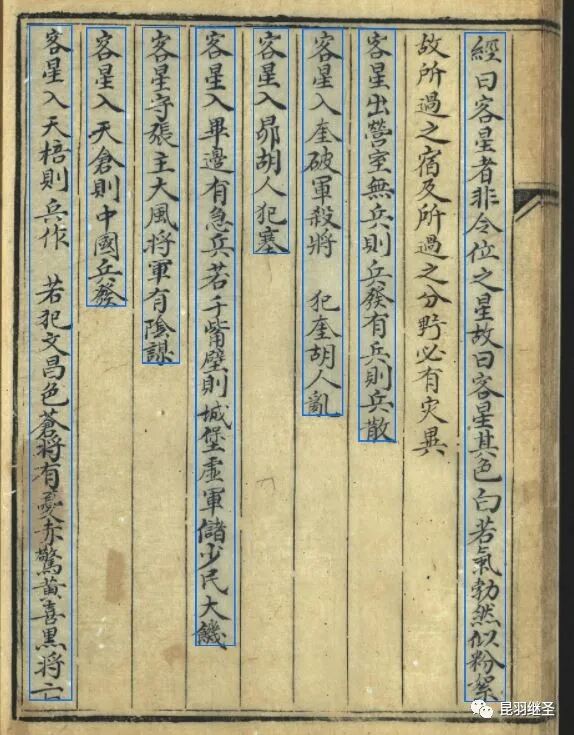 經曰客星者非令位之星故曰客星其色白若氣勃然似粉絮
故所過之宿及所過之分野必有灾異
客星出營室無兵則兵發有兵則兵散
客星入奎破軍殺將 犯奎胡人亂
客星入昴胡人犯塞
客星入畢邊有急兵若干觜壁則城堡虛軍儲少民大饑
客星守張主大風將軍有陰謀
客星入天倉則中國兵發
客星入天棓則兵作 若犯文昌色蒼將有憂赤驚黄喜黑將亡
昆羽继圣